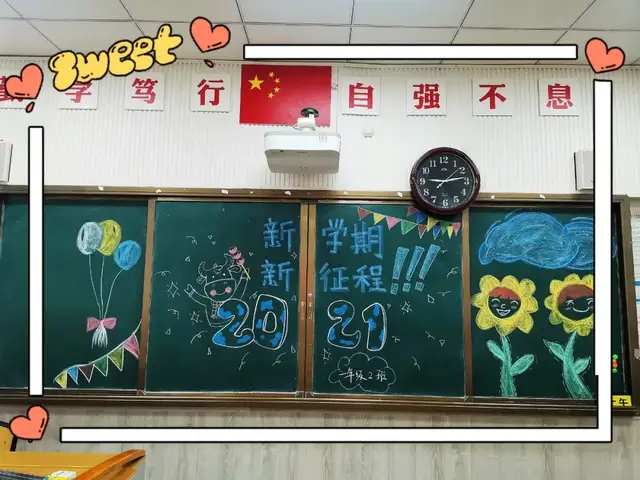 sweet
学笃行 自强不息
新学期
新征程!!!
2021
一年级2班